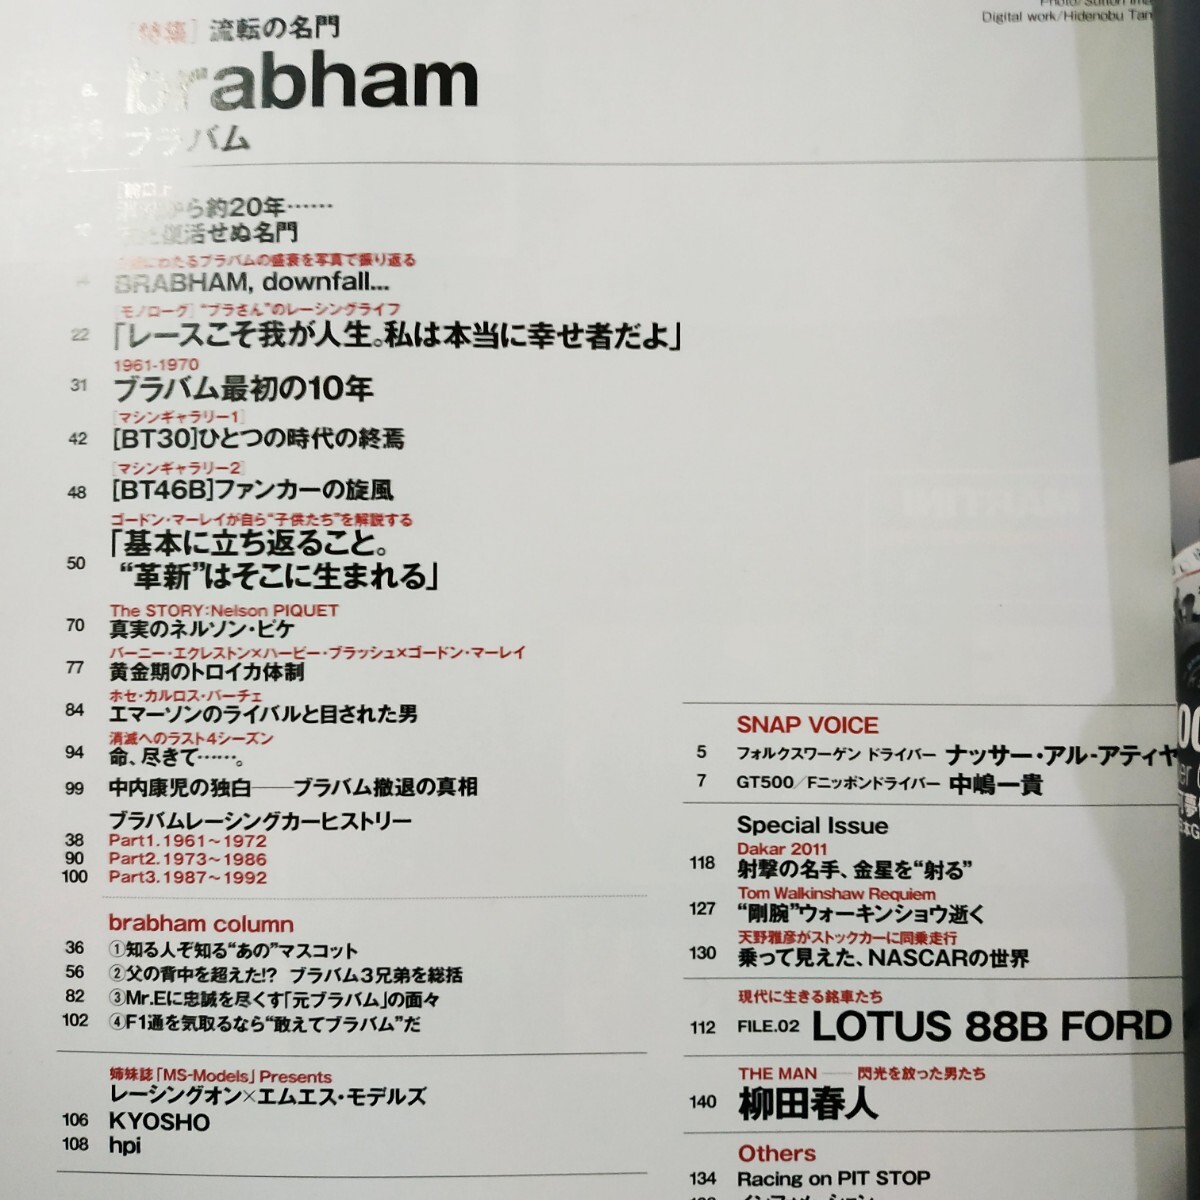 Digital work/Hidenobu
[特集] 流転の名門
brabham
ブラバム
から約20年……
復活せぬ名門
にわたるブラバムの盛衰を写真で振り返る
BRABHAM, downfall...
[モノローグ] “ブラさん”のレーシングライフ
22 「レースこそ我が人生。私は本当に幸せ者だよ」
1961-1970
31 ブラバム最初の10年
[マシンギャラリー1]
42 [BT30]ひとつの時代の終焉
[マシンギャラリー2]
48 [BT46B]ファンカーの旋風
ゴードン・マーレイが自ら“子供たち”を解説する
「基本に立ち返ること。
50 “革新”はそこに生まれる」
The STORY:Nelson PIQUET
70 真実のネルソン・ピケ
バーニー・エクレストン×ハービー・ブラッシュ×ゴードン・マーレイ
77 黄金期のトロイカ体制
ホセ・カルロス・パーチェ
84 エマーソンのライバルと目された男
消滅へのラスト4シーズン
94 命、尽きて……。
99 中内康児の独白——ブラバム撤退の真相
ブラバムレーシングカーヒストリー
38 Part1. 1961～1972
90 Part2. 1973～1986
100 Part3. 1987～1992
brabham column
36 ①知る人ぞ知る“あの”マスコット
56 ②父の背中を超えた!? ブラバム3兄弟を総括
82 ③Mr.Eに忠誠を尽くす「元ブラバム」の面々
102 ④F1通を気取るなら“敢えてブラバム”だ
姉妹誌「MS-Models」Presents
レーシングオン×エムエス・モデルズ
106 KYOSHO
108 hpi
SNAP VOICE
5 フォルクスワーゲン ドライバー ナッサー・アル-アティヤ
7 GT500/Fニッポンドライバー 中嶋一貴
Special Issue
Dakar 2011
118 射撃の名手、金星を“射る”
Tom Walkinshaw Requiem
127 “剛腕”ウォーキンショウ逝く
天野雅彦がストックカーに同乗走行
130 乗って見えた、NASCARの世界
現代に生きる銘車たち
112 FILE.02 LOTUS 88B FORD
THE MAN —— 閃光を放った男たち
140 柳田春人
Others
134 Racing on PIT STOP
インフォメーション